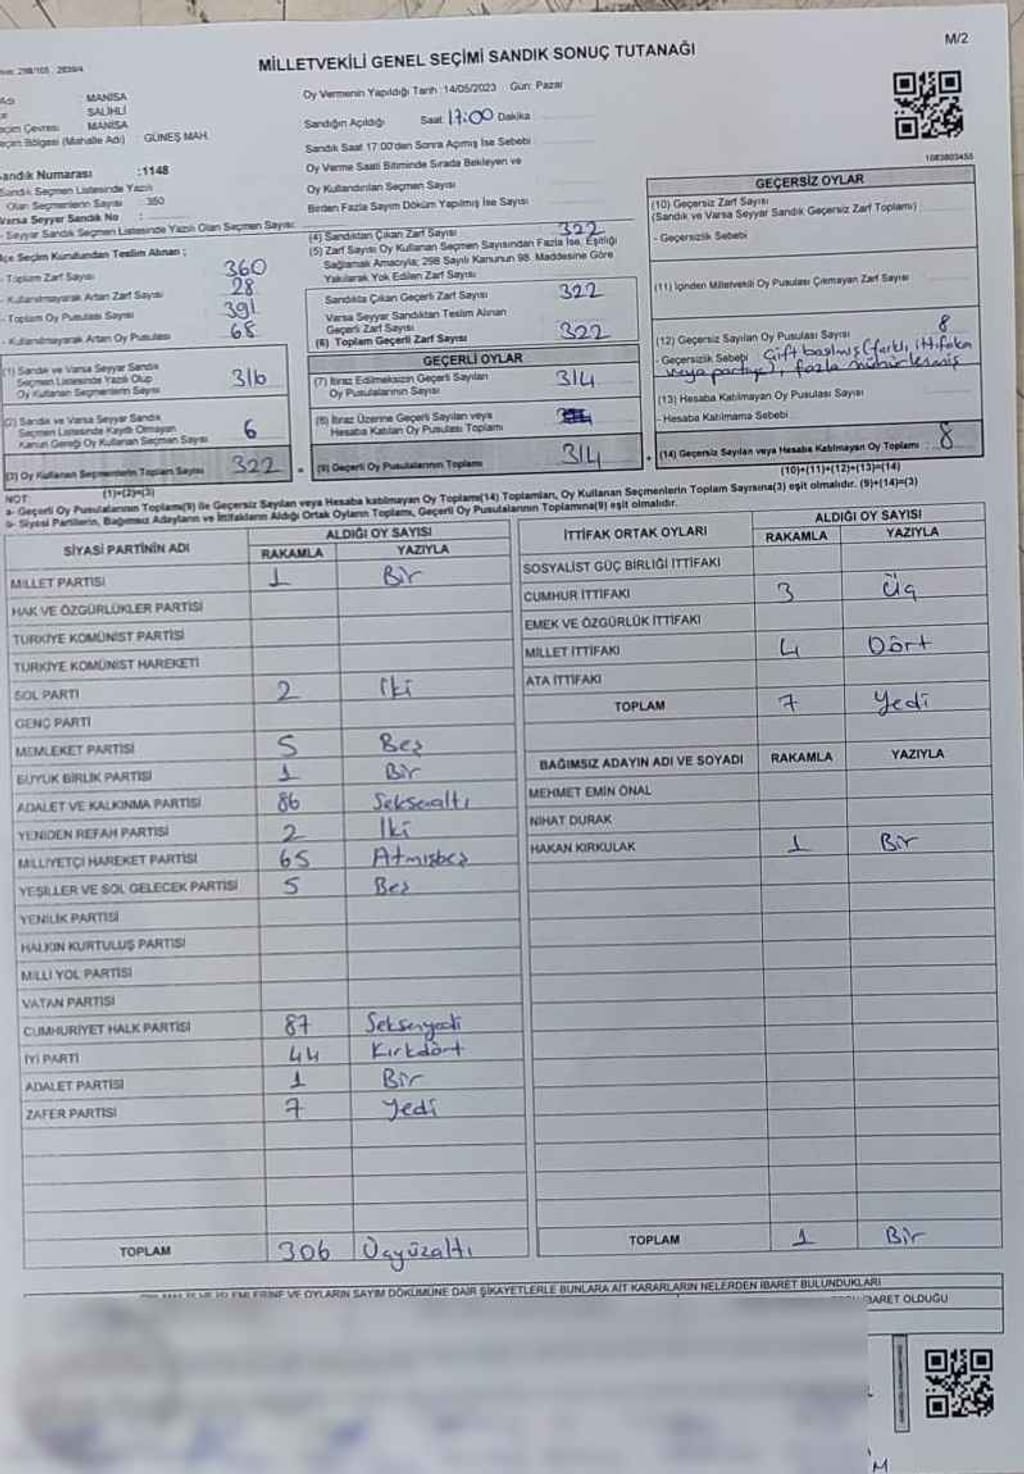 M/2
MİLLETVEKİLİ GENEL SEÇİMİ SANDIK SONUÇ TUTANAĞI
MANİSA
SALİHLİ
Seçim Çevresi MANİSA
(Mahalle Adı) : GÜNEŞ MAH.
Sandık Numarası :1148
Sandık Seçmen Listesinde Yazılı
Olan Seçmenlerin Sayısı : 350
Varsa Seyyar Sandık No :
- Seyyar Sandık Seçmen Listesinde Yazılı Olan Seçmen Sayısı:
Oy Vermenin Yapıldığı Tarih :14/05/2023 Gün: Pazar
Sandığın Açıldığı Saat 17:00 Dakika
Sandık Saat 17:00'den Sonra Açılmış İse Sebebi
Oy Verme Saati Bitiminde Sırada Bekleyen ve
Oy Kullandırılan Seçmen Sayısı
Birden Fazla Sayım Döküm Yapılmış İse Sayısı
1083803455
İlçe Seçim Kurulundan Teslim Alınan ;
- Toplam Zarf Sayısı 360
- Kullanılmayarak Artan Zarf Sayısı 28
- Toplam Oy Pusulası Sayısı 391
- Kullanılmayarak Artan Oy Pusulası 68
(1) Sandık ve Varsa Seyyar Sandık
Seçmen Listesinde Yazılı Olup
Oy Kullanan Seçmenlerin Sayısı 316
(2) Sandık ve Varsa Seyyar Sandık
Seçmen Listesinde Kayıtlı Olmayan
Kanun Gereği Oy Kullanan Seçmen Sayısı 6
(3) Oy Kullanan Seçmenlerin Toplam Sayısı 322
(1)+(2)=(3)
(4) Sandıktan Çıkan Zarf Sayısı 322
(5) Zarf Sayısı Oy Kullanan Seçmen Sayısından Fazla İse, Eşitliği
Sağlamak Amacıyla; 298 Sayılı Kanunun 98. Maddesine Göre
Yakılarak Yok Edilen Zarf Sayısı
Sandıkta Çıkan Geçerli Zarf Sayısı 322
Varsa Seyyar Sandıktan Teslim Alınan
Geçerli Zarf Sayısı
(6) Toplam Geçerli Zarf Sayısı 322
GEÇERLİ OYLAR
(7) İtiraz Edilmeksizin Geçerli Sayılan
Oy Pusulalarının Sayısı 314
(8) İtiraz Üzerine Geçerli Sayılan veya
Hesaba Katılan Oy Pusulası Toplamı
(9) Geçerli Oy Pusulalarının Toplamı 314
GEÇERSİZ OYLAR
(10) Geçersiz Zarf Sayısı
(Sandık ve Varsa Seyyar Sandık Geçersiz Zarf Toplamı)
- Geçersizlik Sebebi
(11) İçinden Milletvekili Oy Pusulası Çıkmayan Zarf Sayısı
(12) Geçersiz Sayılan Oy Pusulası Sayısı 8
- Geçersizlik Sebebi Çift basılmış (farklı ittifaka
veya partiye), fazla mühürlenmiş
(13) Hesaba Katılmayan Oy Pusulası Sayısı
- Hesaba Katılmama Sebebi
(14) Geçersiz Sayılan veya Hesaba Katılmayan Oy Toplamı : 8
(10)+(11)+(12)+(13)=(14)
NOT:
a- Geçerli Oy Pusulalarının Toplamı(9) ile Geçersiz Sayılan veya Hesaba katılmayan Oy Toplamı(14) Toplamları, Oy Kullanan Seçmenlerin Toplam Sayısına(3) eşit olmalıdır. (9)+(14)=(3)
b- Siyasi Partilerin, Bağımsız Adayların ve İttifakların Aldığı Ortak Oyların Toplamı, Geçerli Oy Pusulalarının Toplamına(9) eşit olmalıdır.
SİYASİ PARTİNİN ADI ALDIĞI OY SAYISI
RAKAMLA YAZIYLA
MİLLET PARTİSİ 1 Bir
HAK VE ÖZGÜRLÜKLER PARTİSİ
TÜRKİYE KOMÜNİST PARTİSİ
TÜRKİYE KOMÜNİST HAREKETİ
SOL PARTİ 2 İki
GENÇ PARTİ
MEMLEKET PARTİSİ 5 Beş
BÜYÜK BİRLİK PARTİSİ 1 Bir
ADALET VE KALKINMA PARTİSİ 86 Seksenaltı
YENİDEN REFAH PARTİSİ 2 İki
MİLLİYETÇİ HAREKET PARTİSİ 65 Atmışbeş
YEŞİLLER VE SOL GELECEK PARTİSİ 5 Beş
YENİLİK PARTİSİ
HALKIN KURTULUŞ PARTİSİ
MİLLİ YOL PARTİSİ
VATAN PARTİSİ
CUMHURİYET HALK PARTİSİ 87 Seksenyedi
İYİ PARTİ 44 Kırkdört
ADALET PARTİSİ 1 Bir
ZAFER PARTİSİ 7 Yedi
TOPLAM 306 Üçyüzaltı
İTTİFAK ORTAK OYLARI ALDIĞI OY SAYISI
RAKAMLA YAZIYLA
SOSYALİST GÜÇ BİRLİĞİ İTTİFAKI
CUMHUR İTTİFAKI 3 Üç
EMEK VE ÖZGÜRLÜK İTTİFAKI
MİLLET İTTİFAKI 4 Dört
ATA İTTİFAKI
TOPLAM 7 Yedi
BAĞIMSIZ ADAYIN ADI VE SOYADI RAKAMLA YAZIYLA
MEHMET EMİN ÖNAL
NİHAT DURAK
HAKAN KIRKULAK 1 Bir
TOPLAM 1 Bir
VE OYLARIN SAYIM DÖKÜMÜNE DAİR ŞİKAYETLERLE BUNLARA AİT KARARLARIN NELERDEN İBARET BULUNDUKLARI
İBARET OLDUĞU